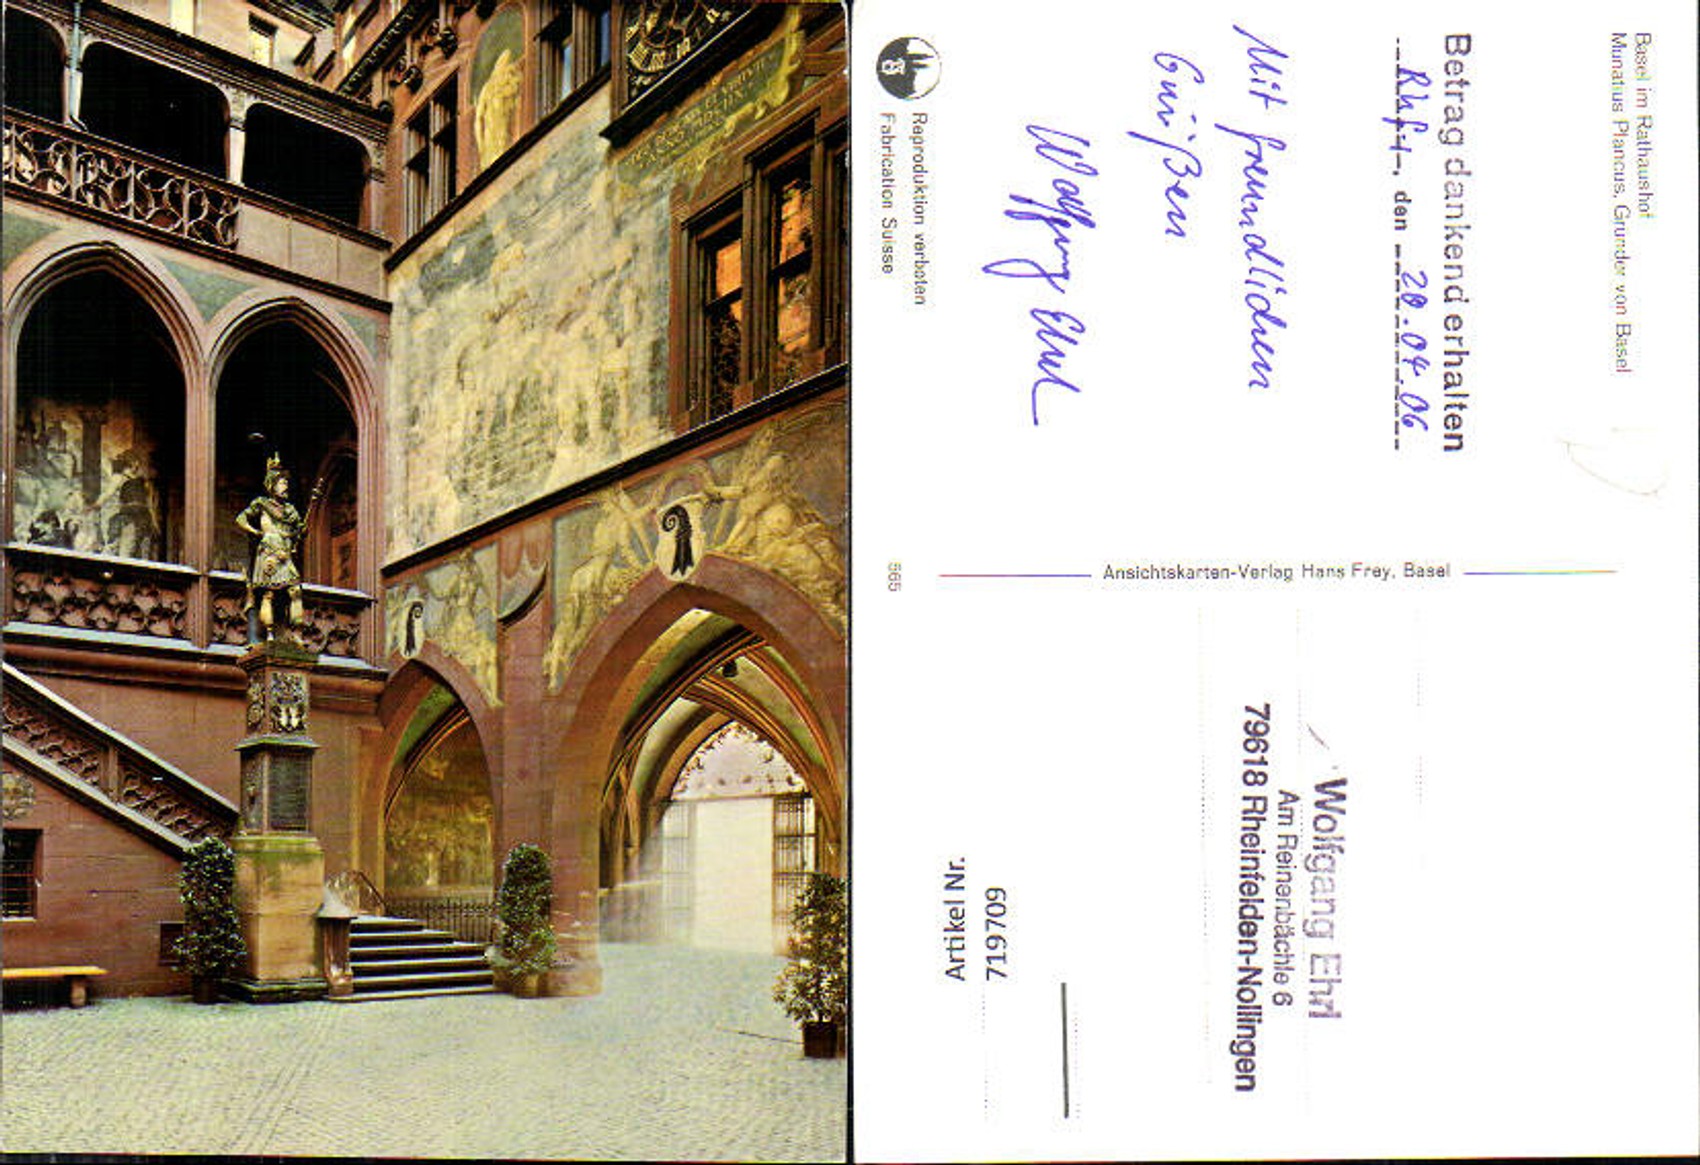 Basel im Rathaushof
Munatius Plancus, Gründer von Basel
Betrag dankend erhalten
den 20.04.06
Mit freundlichen
Grüßen
Wolfgang Ehrl
Reproduktion verboten
Fabrication Suisse
565
Ansichtskarten-Verlag Hans Frey, Basel
Wolfgang Ehrl
Am Reinenbächle 6
79618 Rheinfelden-Nollingen
Artikel Nr.
7197709